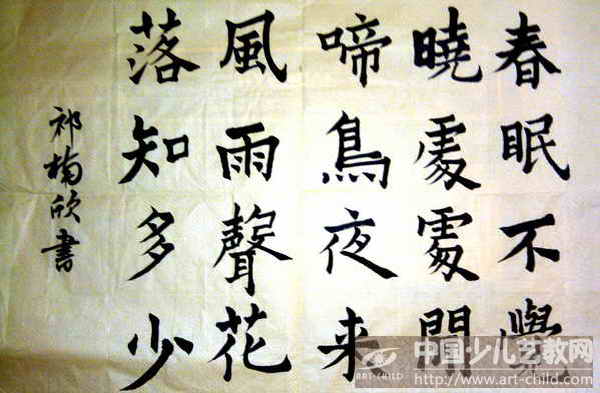 春眠不覺
曉處處聞
啼鳥夜来
風雨聲花
落知多少
祁楠欣書
ART-CHILD
中国少儿艺教网
http://www.art-child.com